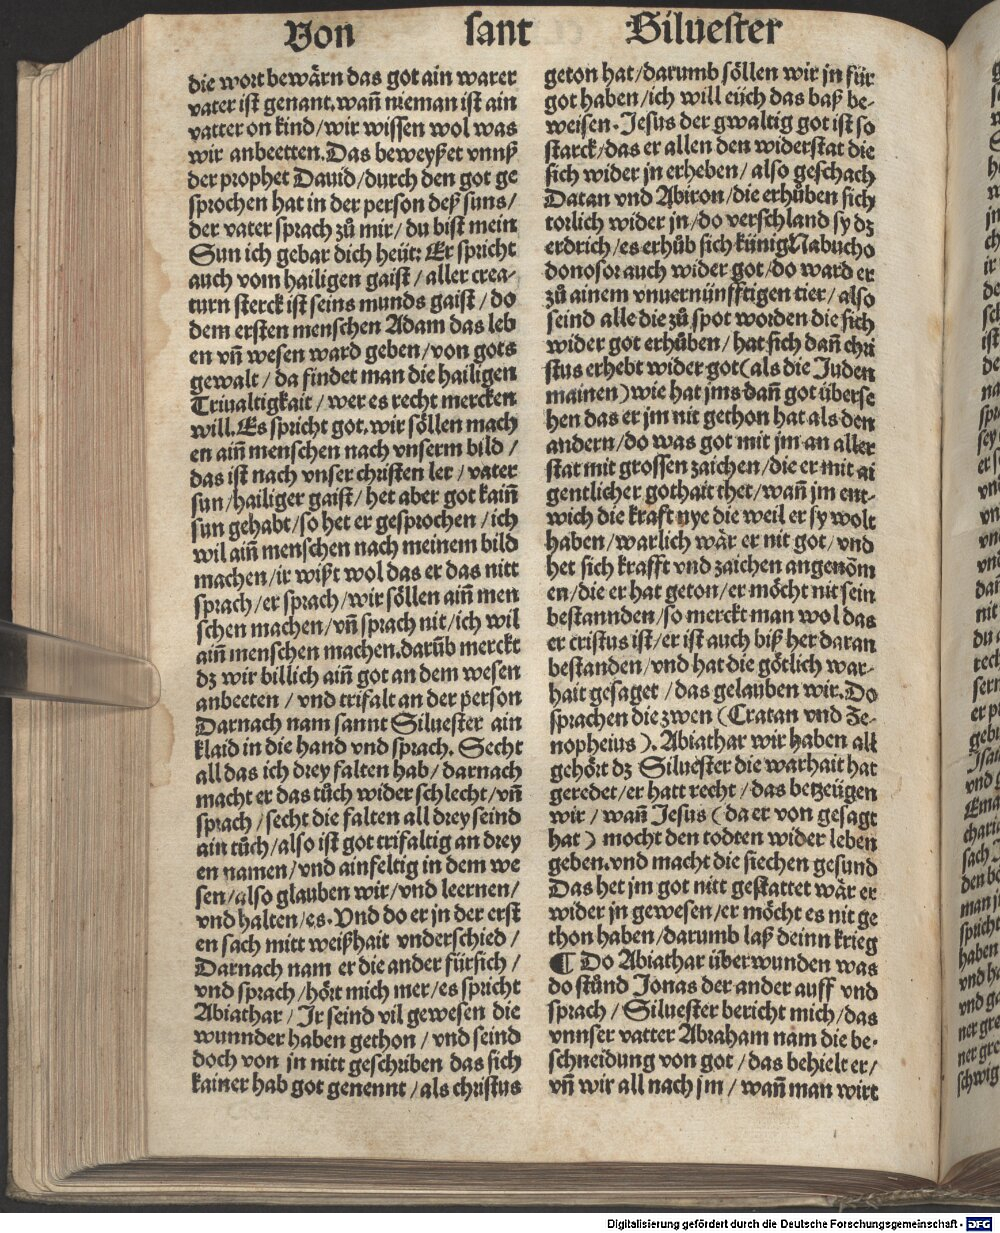 Von sant Siluester
die wort bewärn das got ain warer
vater ist genant. wañ nieman ist ain
vatter on kind/wir wissen wol was
wir anbeetten. Das beweyßet vnnß
der prophet Dauid/durch den got ge
sprochen hat in der person deß suns/
der vater sprach zů mir/du bist mein
Sun ich gebar dich heüt: Er spricht
auch vom hailigen gaist/aller crea-
turn sterck ist seins munds gaist/do
dem ersten menschen Adam das leb
en vñ wesen ward geben/von gots
gewalt/da findet man die hailigen
Triualtigkait/wer es recht mercken
will. Es spricht got. wir söllen mach
en aiñ menschen nach vnserm bild/
das ist nach vnser christen ler/vater
sun/hailiger gaist/het aber got kaiñ
sun gehabt/so het er gesprochen/ich
wil aiñ menschen nach meinem bild
machen/ir wißt wol das er das nitt
sprach/er sprach/wir söllen aiñ men
schen machen/vñ sprach nit/ich wil
aiñ menschen machen. darūb merckt
dz wir billich aiñ got an dem wesen
anbeeten/vnd trifalt an der person
Darnach nam sannt Siluester ain
klaid in die hand vnd sprach. Secht
all das ich drey falten hab/darnach
macht er das tůch wider schlecht/vñ
sprach/secht die falten all drey seind
ain tůch/also ist got trifaltig an drey
en namen/vnd ainfeltig in dem we
sen/also glauben wir/vnd leernen/
vnd halten/es. Vnd do er jn der erst
en sach mitt weißhait vnderschied/
Darnach nam er die ander fürsich/
vnd sprach/hört mich mer/es spricht
Abiathar/Ir seind vil gewesen die
wunnder haben gethon/vnd seind
doch von jn nitt geschriben das sich
kainer hab got genennt/als christus
geton hat/darumb söllen wir jn für
got haben/ich will eüch das baß be-
weisen. Jesus der gwaltig got ist so
starck/das er allen den widerstat die
sich wider jn erheben/also geschach
Datan vnd Abiron/die erhůben sich
torlich wider jn/do verschland sy dz
erdrich/es erhůb sich künig Nabucho
donosor auch wider got/do ward er
zů ainem vnuernünfftigen tier/also
seind alle die zů spot worden die sich
wider got erhůben/hat sich dañ chri
stus erhebt wider got (als die Juden
mainen) wie hat jms dañ got überse
hen das er jm nit gethon hat als den
andern/do was got mit jm an aller
stat mit grossen zaichen/die er mit ai
gentlicher gothait thet/wañ jm ent-
wich die kraft nye die weil er sy wolt
haben/warlich wär er nit got/vnd
het sich krafft vnd zaichen angenōm
en/die er hat geton/er möcht nit sein
bestannden/so merckt man wol das
er cristus ist/er ist auch biß her daran
bestanden/vnd hat die götlich war-
hait gesaget/das gelauben wir. Do
sprachen die zwen (Cratan vnd Ze-
nopheius). Abiathar wir haben all
gehört dz Siluester die warhait hat
geredet/er hatt recht/das betzeügen
wir/wañ Jesus (da er von gesagt
hat) mocht den todten wider leben
geben. vnd macht die siechen gesund
Das het jm got nitt gestattet wär er
wider jn gewesen/er möcht es nit ge
thon haben/darumb laß deinn krieg
¶ Do Abiathar überwunden was
do stůnd Jonas der ander auff vnd
sprach/Siluester bericht mich/das
vnnser vatter Abraham nam die be-
schneidung von got/das behielt er/
vñ wir all nach jm/wañ man wirt
Digitalisierung gefördert durch die Deutsche Forschungsgemeinschaft - DFG